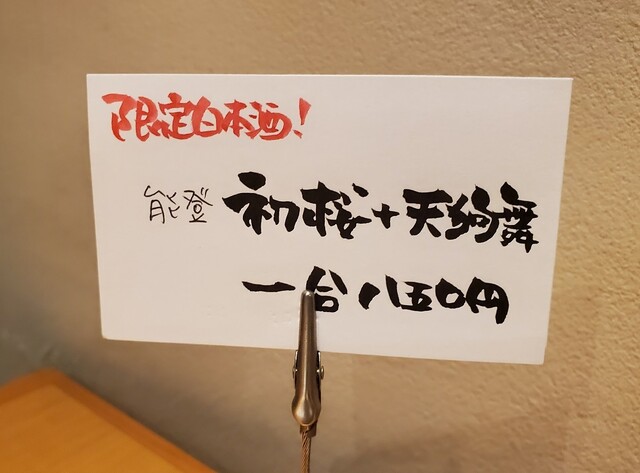 限定日本酒!
能登 初桜+天狗舞
一合 八五〇円